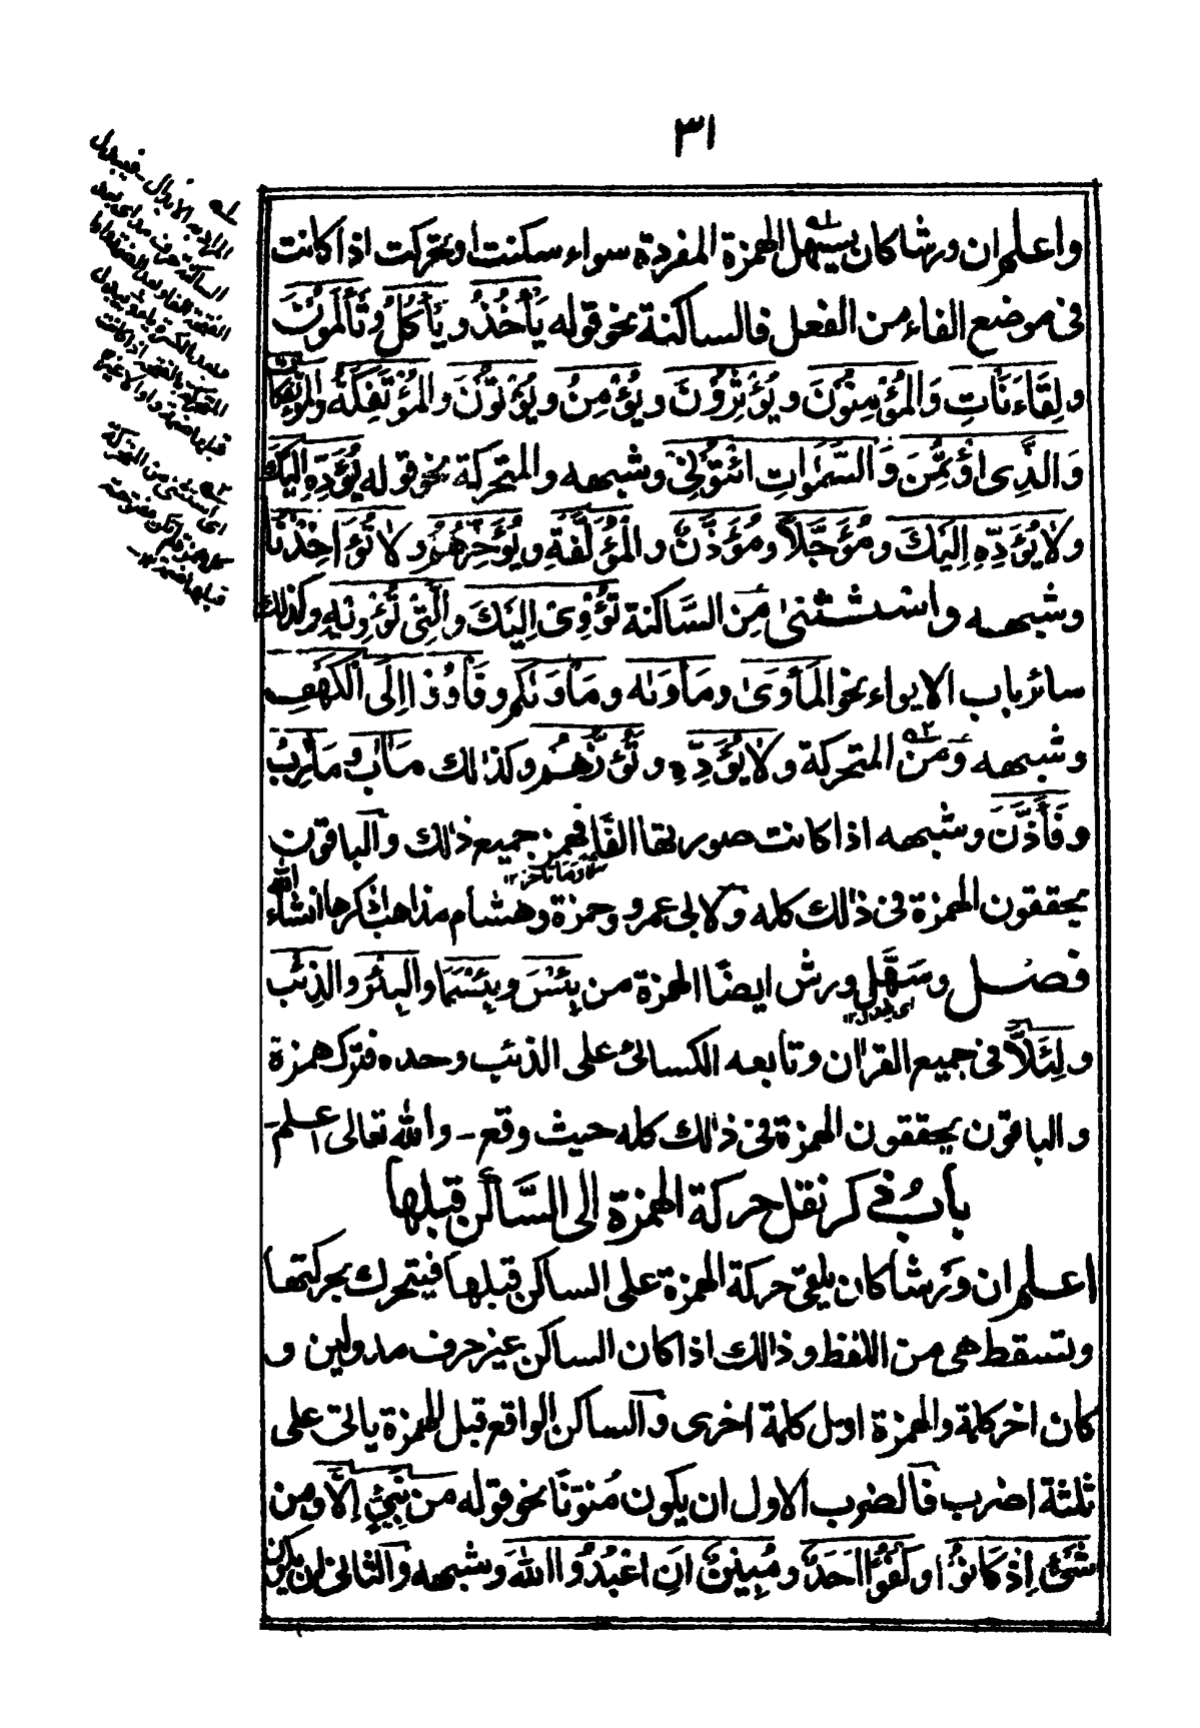 ٣١
واعلم ان ورشا كان يسهل الهمزة المفردة سواء سكنت او تحركت اذا كانت
فى موضع الفاء من الفعل فالساكنة نحو قوله يَأْخُذُ و يَأْكُلُ و تَأْلَمُوْنَ
و لِقَاءَنَائْتِ وَالْمُؤْمِنُوْنَ و يُؤْثِرُوْنَ و يُؤْمِنُ و يُؤْتُوْنَ والْمُؤْتَفِكَةُ والْمُؤْتَفِكَاتُ
وَالَّذِى اؤْتُمِنَ وَ السَّمٰوَاتِ ائْتُوْنِىْ وشبهه والمتحركة نحو قوله يُؤَدِّهِ اِلَيْكَ
و لَا يُؤَدِّهِ اِلَيْكَ و مُؤَجَّلًا و مُؤَذِّنٌ و الْمُؤَلَّفَةِ و يُؤَخِّرُهُمْ و لَا تُؤَاخِذْنَا
وشبهه واستثنىٰ مِن السَّاكنة تُؤْوِىْ اِلَيْكَ والَّتِىْ تُؤْوِيْهِ وكذلك
سائر باب الايواء نحو الْمَأْوَىٰ و مَأْوٰىهُ و مَأْوٰىكُمْ و فَأْوُوْا اِلَى الْكَهْفِ
وشبهه وَ مِنَ المتحركة و لَا يُؤَدِّهِ و تَؤُزُّهُمْ وكذالك مَاٰبٌ و مَاٰرِبُ
و فَأَذَّنَ وشبهه اذا كانت صورتها الفًا فهمز جميع ذلك والباقون
يحققون الهمزة فى ذالك كله ولابى عمرو وحمزة وهشام مذاهب اذكرها انشاء الله
فصل وسَهَّل ورش ايضًا الهمزة من بِئْسَ و بِئْسَمَا والْبِئْرُ والذِئْب
اى يبدل ١٢
و لِئَلَّا فى جميع القراٰن وتابعه الكسائى على الذئب وحده فترك همزة
والباقون يحققون الهمزة فى ذلك كله حيث وقع - والله تعالى اعلم
بابُ ذكر نقل حركة الهمزة الى السَّاكن قبلها
اعلم ان ورشا كان يلقى حركة الهمزة على الساكن قبلها فيتحرك بحركتها
وتسقط هى من اللفظ وذالك اذا كان الساكن غير حرف مد ولين و
كان اخر كلمة والهمزة اول كلمة اخرى والساكن الواقع قبل الهمزة ياتى على
ثلثة اضرب فالضرب الاول ان يكون مُنونًا نحو قوله مِنْ نَبِىٍّ اِلَّا و مِنْ
شَىْءٍ اِذْ كَانُوْا و كُفُوًا اَحَدٌ و مُبِيْنٌ اَنِ اعْبُدُوا اللهَ وشبهه والثانى ان يكون